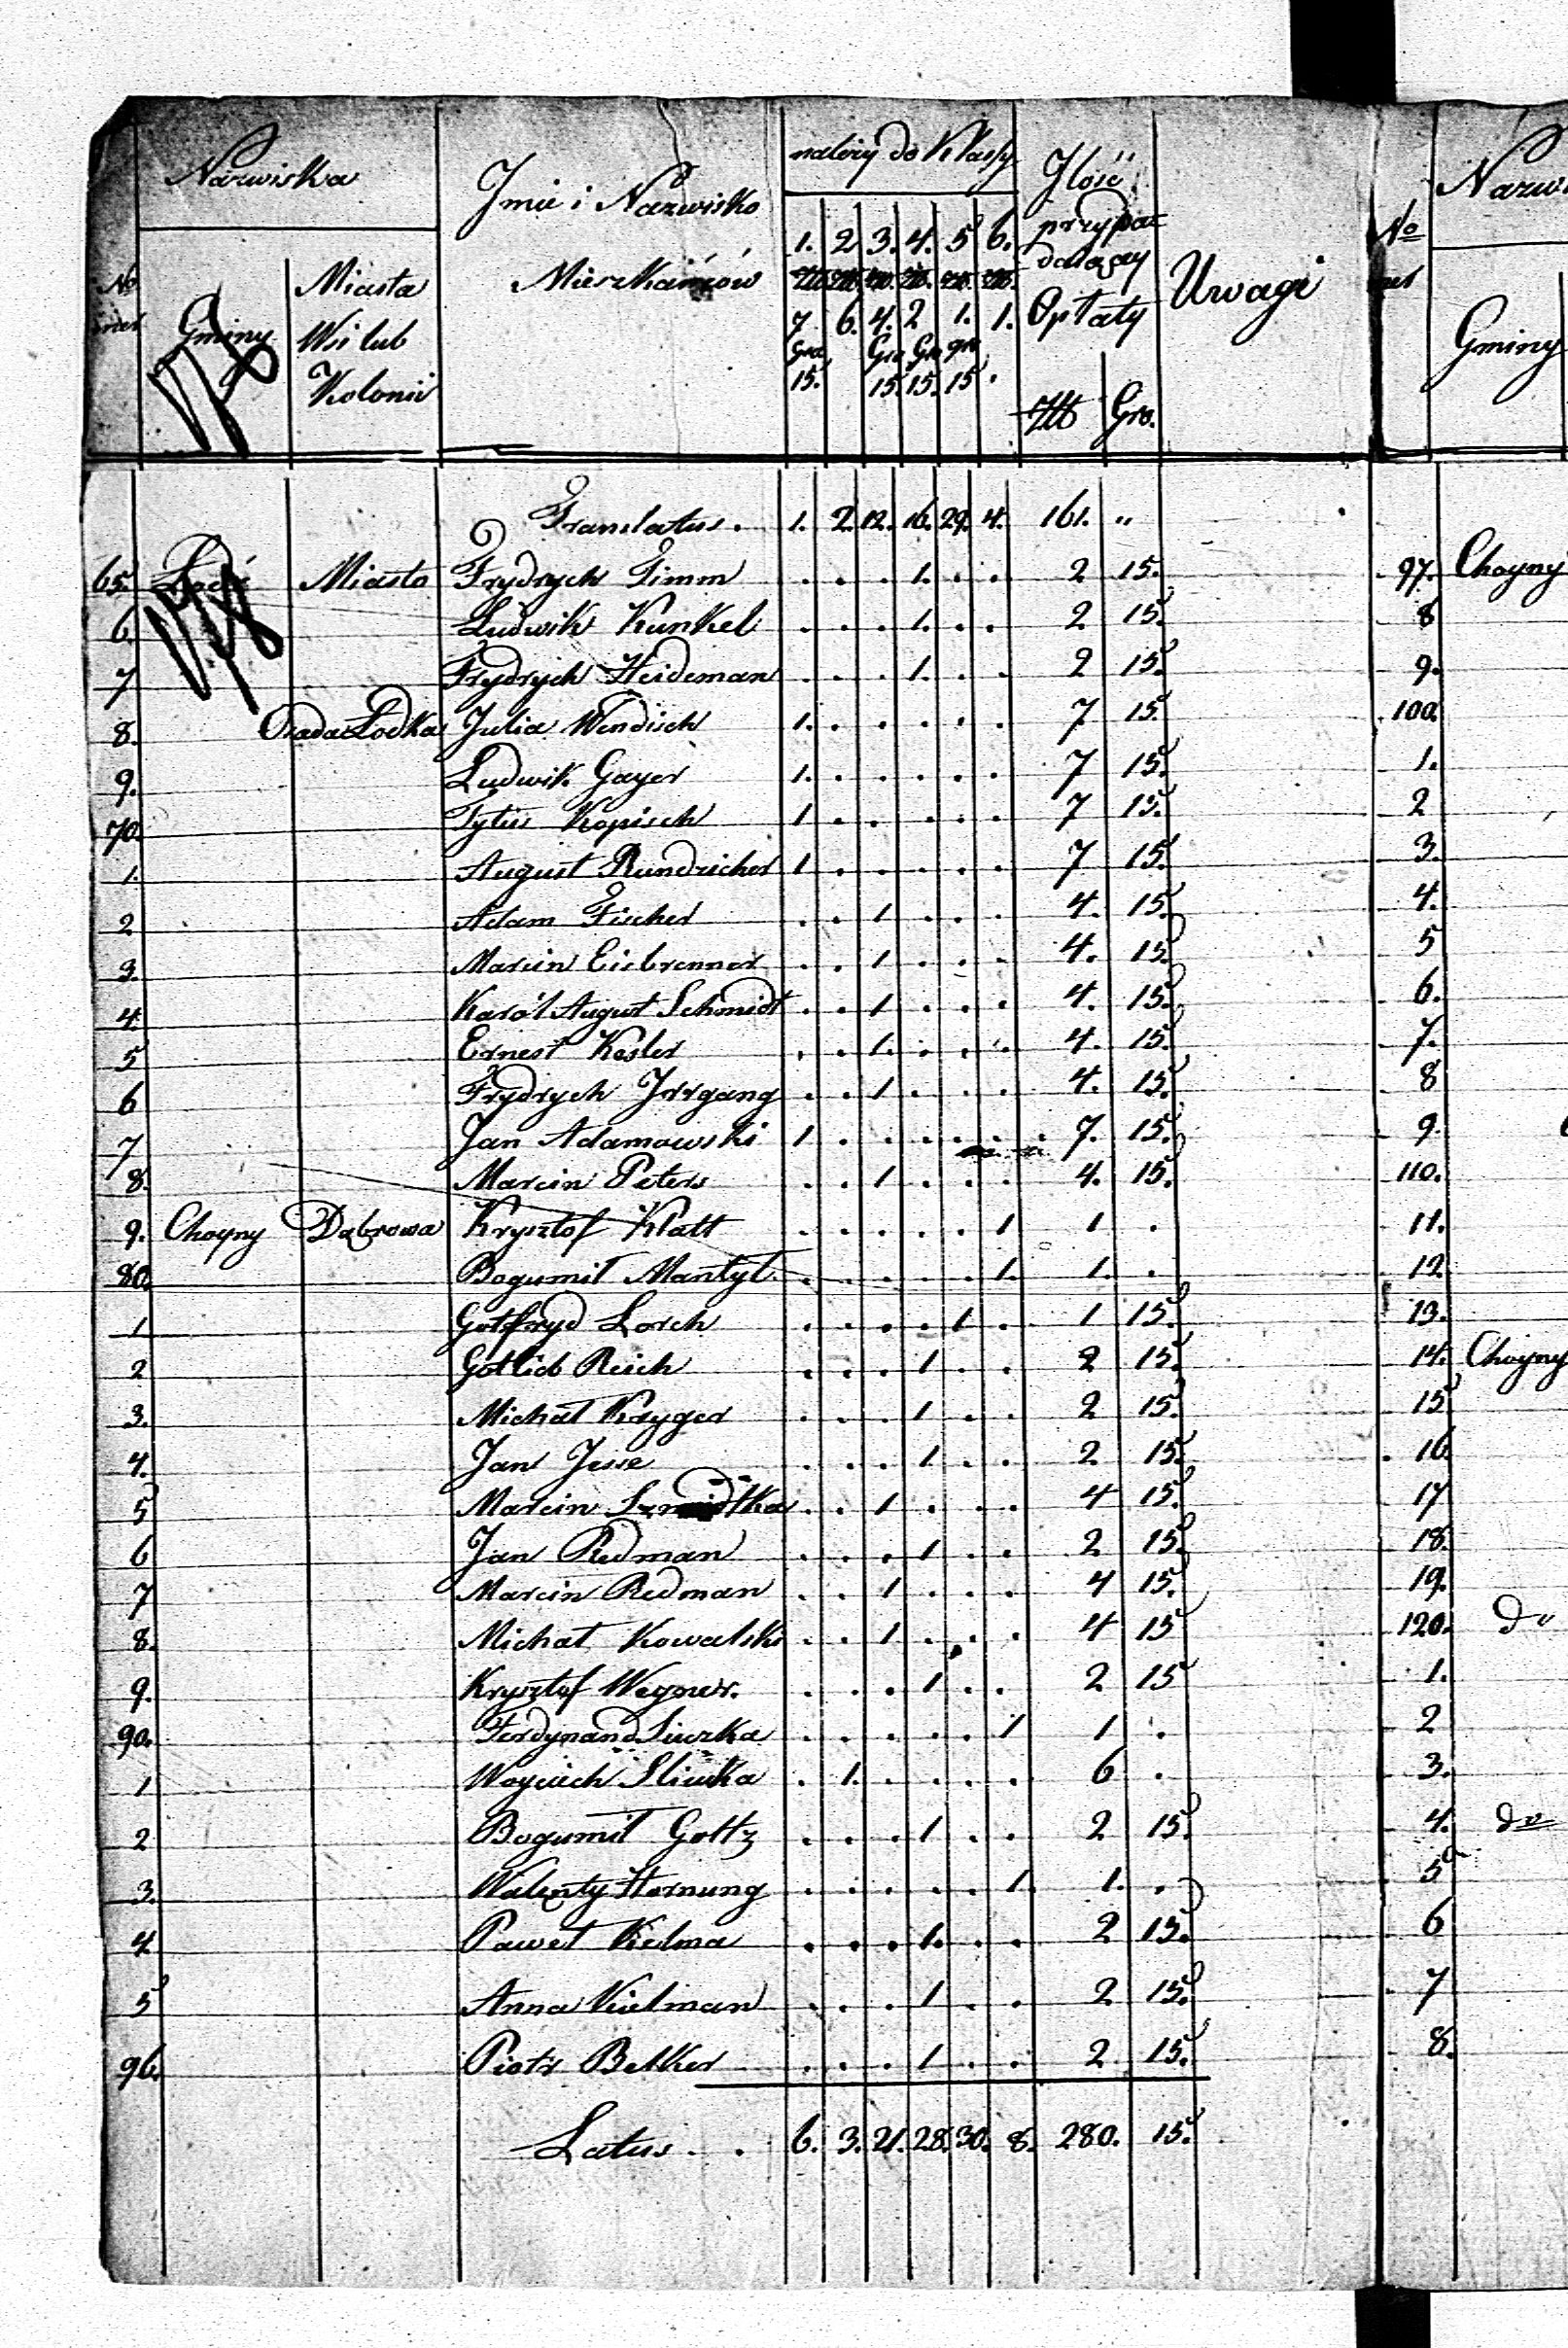 No
Nazwiska
Gminy
Miasta
Wsi lub
Kolonii
Jmie i Nazwisko
Mieszkańców
należy do Klassy
1. 2. 3. 4. 5 6.
Złt. Złt. Złt. Złt. Złt. Złt.
7 6. 4. 2 1. 1.
Gro. Gro Gro gro
15. 15. 15. 15 .
Jlość
przypa-
daiącey
Opłaty
Złt Gro.
Uwagi
Translatus. 1. 2. 12. 16. 29. 4. 161. "
65. Łodź Miasto Frydrych Timm . . . 1. . . 2 15.
6 Ludwik Kunkel . . . 1. . . 2 15.
7 Frydrych Heideman . . . 1. . . 2 15.
8. Osada Łodka Julia Wendisch 1. . . . . . 7 15.
9. Ludwik Gayer 1. . . . . . 7 15.
70. Tytus Kopisch 1 . . . . . 7 15.
1. August Rundzicher 1 . . . . . 7 15.
2 Adam Fischer . . 1 . . . 4. 15.
3. Marcin Eisbrenner . . 1 . . . 4. 15.
4. Karól August Schmidt . . 1 . . . 4. 15.
5 Ernest Kesler . . 1. . . . 4. 15.
6 Frydrych Jrrgang . . 1 . . . 4. 15.
7 Jan Adamowski 1 . . . . . 7. 15.
8. Marcin Peters . . 1 . . . 4. 15.
9. Choyny Dąbrowa Krysztof Klatt . . . . . 1 1 .
80. Bogumił Mantyl . . . . . 1. 1. .
1 Gottfryd Lorch . . . . 1 . 1 15.
2 Gotlieb Reich . . . 1 . . 2 15.
3. Michał Kryger . . . 1 . . 2 15.
4. Jan Jesse . . . 1 . . 2 15.
5 Marcin Szmidtka . . 1 . . . 4 15.
6 Jan Redman . . . 1 . . 2 15.
7 Marcin Redman . . 1 . . . 4 15.
8. Michał Kowalski . . 1 . . . 4 15
9. Krysztof Wegner. . . . 1 . . 2 15
90. Ferdynand Siuzka . . . . . 1 1 .
1 Woyciech Sliwka . 1. . . . . 6 .
2 Bogumił Goltz . . . 1 . . 2 15.
3. Walenty Hornung . . . . . 1. 1. .
4 Paweł Kielma . . . 1. . . 2 15.
5 Anna Kielman . . . 1 . . 2 15.
96. Piotr Betker . . . 1 . . 2 15.
Latus . . 6. 3. 21. 28. 30. 8. 280. 15.
No
Gminy
97. Choyny
8
9.
100.
1.
2
3.
4.
5
6.
7.
8
9
110.
11.
12
13.
14. Choyny
15
16
17
18.
19.
120. do
1.
2
3.
4. do
5
6
7
8.